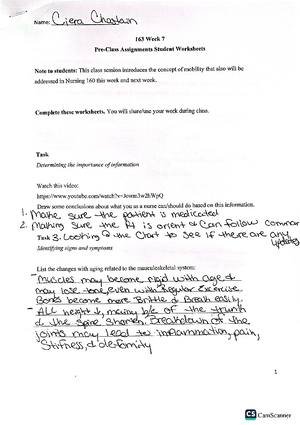 Name: Ciera Chastain
163 Week 7
Pre-Class Assignments Student Worksheets
Note to students: This class session introduces the concept of mobility that also will be
addressed in Nursing 160 this week and next week.
Complete these worksheets. You will share/use your week during class.
Task
Determining the importance of information
Watch this video:
Draw some conclusions about what you as a nurse can/should do based on this information.
1. Make sure the patient is medicated
2. Making sure the Pt is orient & can follow commar
Task 3. Looking @ the Chart to see if there are any
updates
Identifying signs and symptoms
List the changes with aging related to the musculoskeletal system:
- Muscles may become rigid with age &
may lose tone, even with Regular Exercise.
Bones become more Brittle & Break easily.
- ALL height ↓, mainly b/c of the trunk
& the spine shorten. Breakdown of the
joints may lead to inflammation, pain,
stiffness, & deformity
1
CS CamScanner